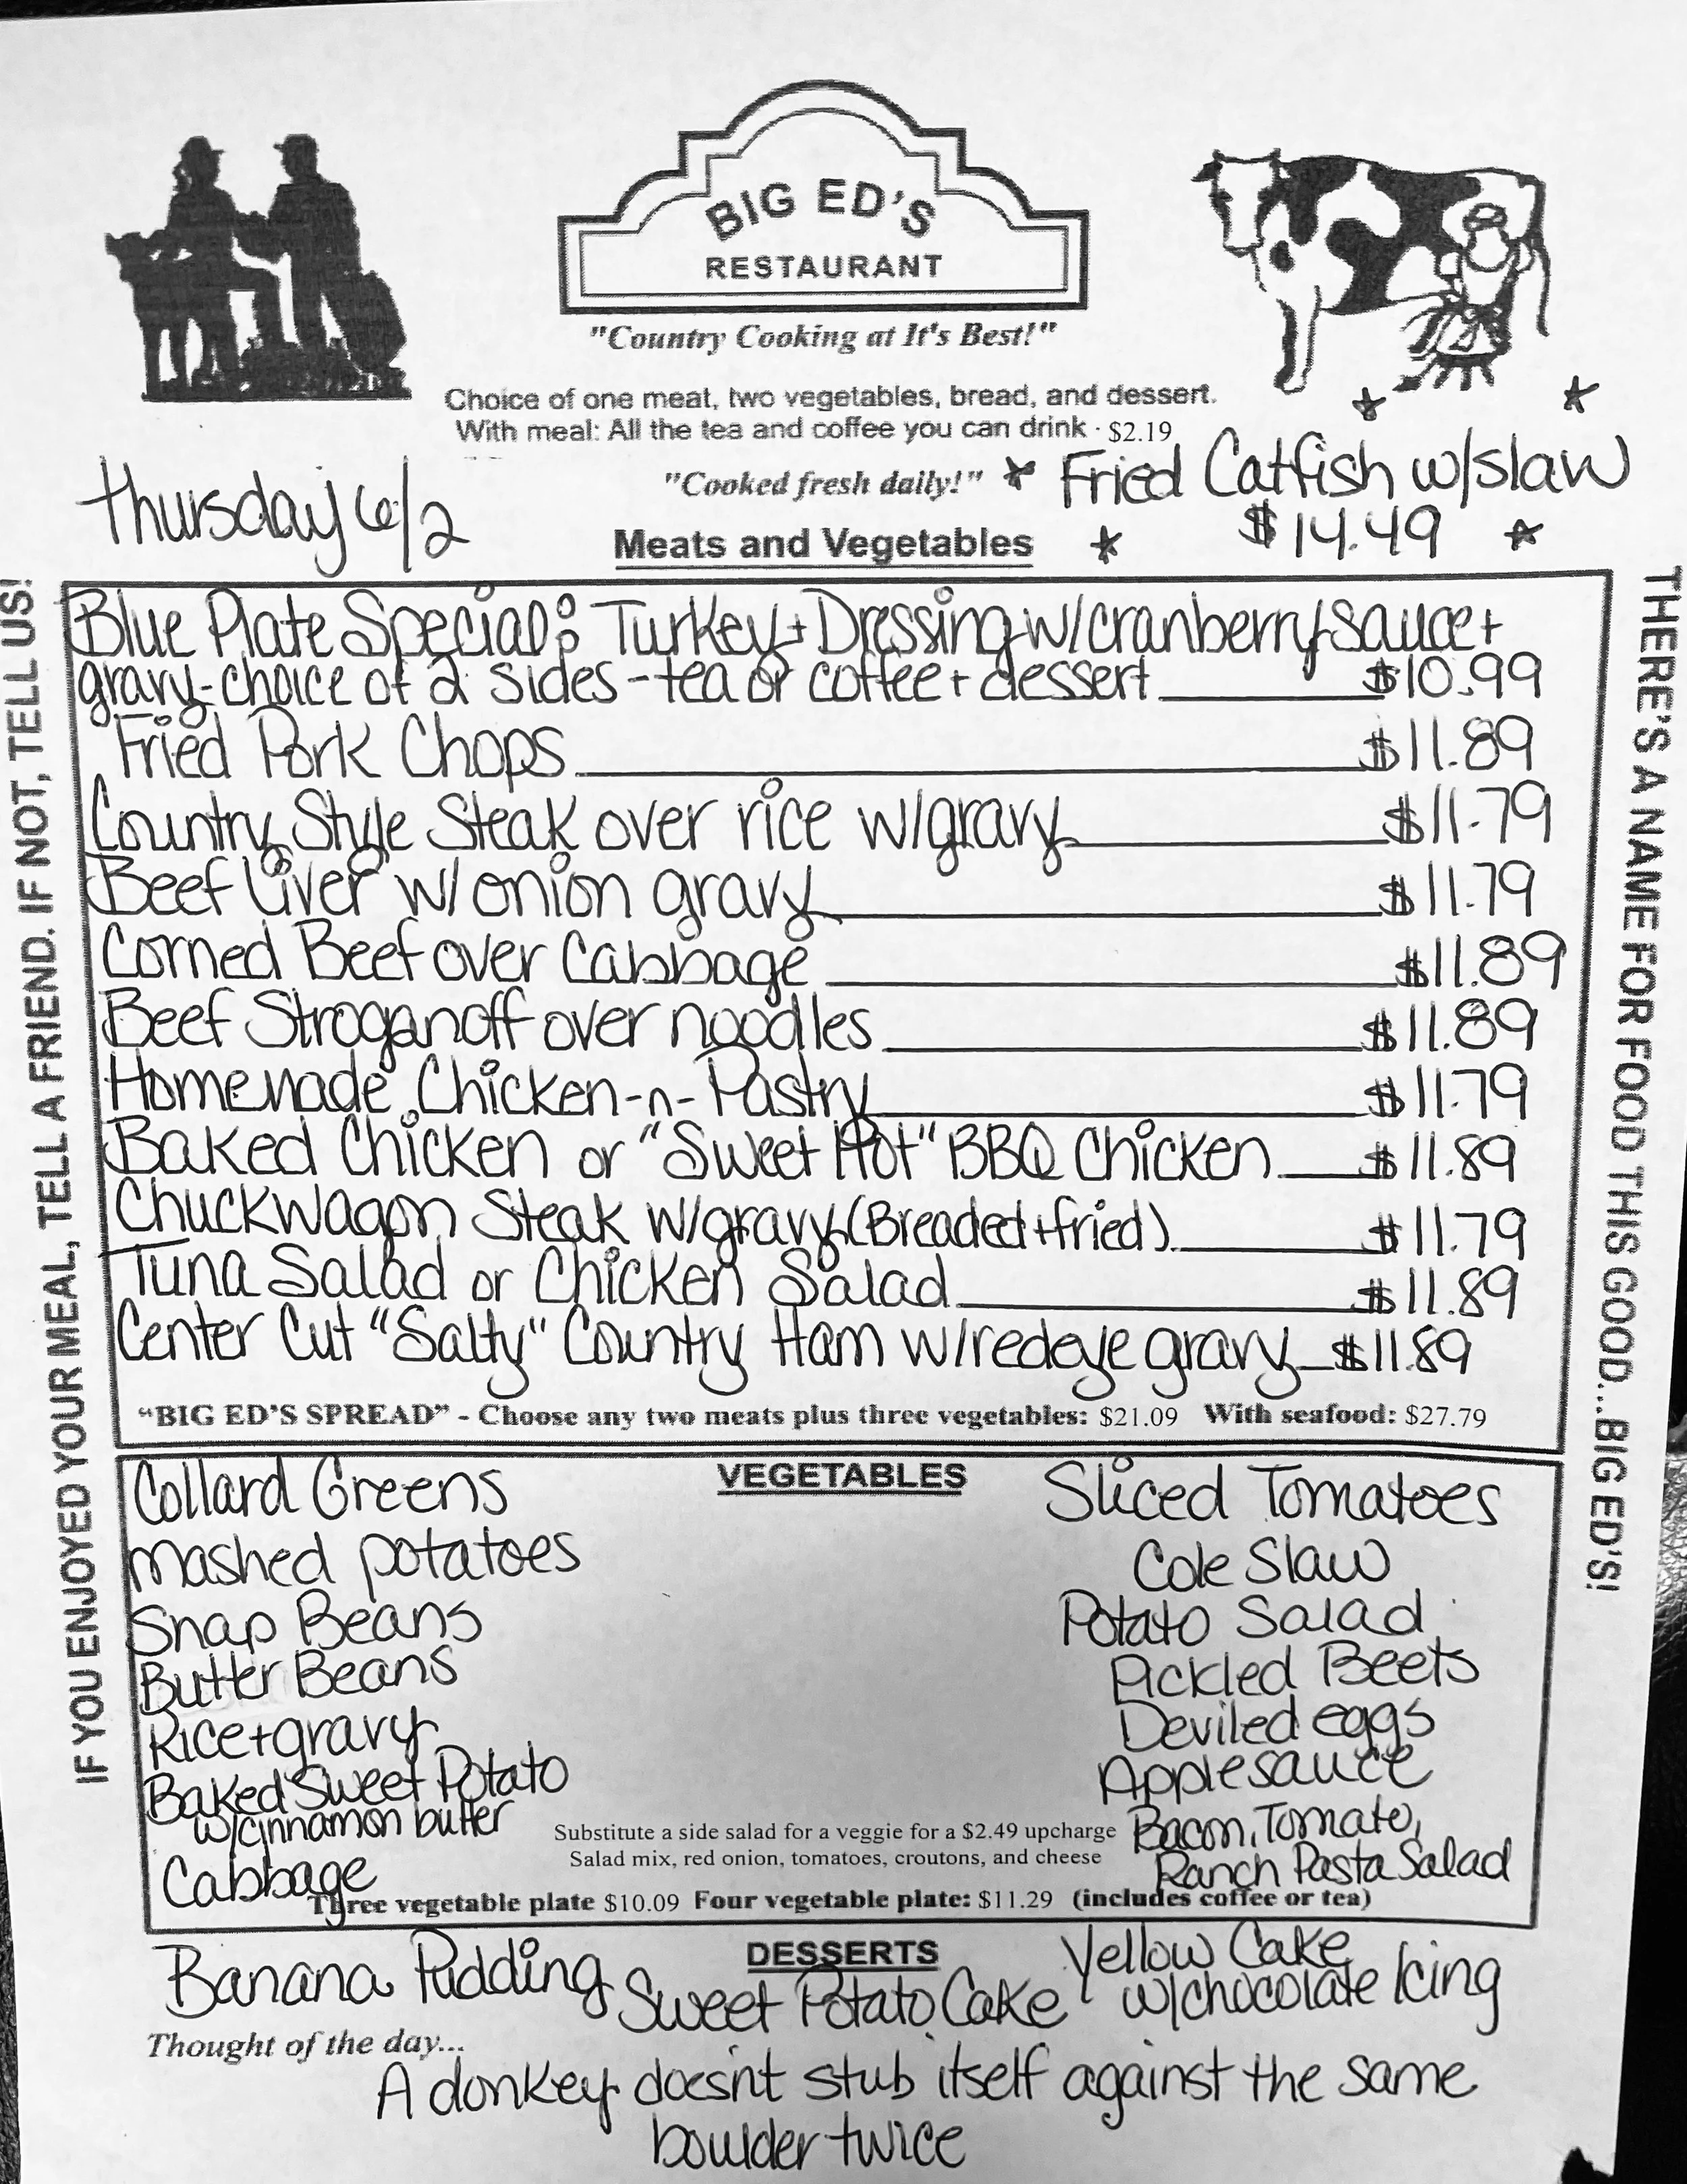 BIG ED'S
RESTAURANT
"Country Cooking at It's Best!"
Choice of one meat, two vegetables, bread, and dessert.
With meal: All the tea and coffee you can drink · $2.19
"Cooked fresh daily!"
Thursday 6/2
Fried Catfish w/slaw
$14.49
Meats and Vegetables
IF YOU ENJOYED YOUR MEAL, TELL A FRIEND. IF NOT, TELL US!
Blue Plate Special: Turkey + Dressing w/cranberry sauce +
gravy - choice of 2 sides - tea or coffee + dessert $10.99
Fried Pork Chops $11.89
Country Style Steak over rice w/gravy $11.79
Beef Liver w/onion gravy $11.79
Corned Beef over Cabbage $11.89
Beef Stroganoff over noodles $11.89
Homemade Chicken-n-Pastry $11.79
Baked Chicken or "Sweet Hot" BBQ Chicken $11.89
Chuckwagon Steak w/gravy (Breaded + fried) $11.79
Tuna Salad or Chicken Salad $11.89
Center Cut "Salty" Country Ham w/redeye gravy $11.89
"BIG ED'S SPREAD" - Choose any two meats plus three vegetables: $21.09 With seafood: $27.79
THERE'S A NAME FOR FOOD THIS GOOD...BIG ED'S!
VEGETABLES
Collard Greens
mashed potatoes
Snap Beans
Butter Beans
Rice + gravy
Baked Sweet Potato
w/cinnamon butter
Cabbage
Sliced Tomatoes
Cole Slaw
Potato Salad
Pickled Beets
Deviled eggs
Applesauce
Bacon, Tomato,
Ranch Pasta Salad
Substitute a side salad for a veggie for a $2.49 upcharge
Salad mix, red onion, tomatoes, croutons, and cheese
Three vegetable plate $10.09 Four vegetable plate: $11.29 (includes coffee or tea)
DESSERTS
Banana Pudding
Sweet Potato Cake
Yellow Cake
w/chocolate Icing
Thought of the day...
A donkey doesn't stub itself against the same
boulder twice